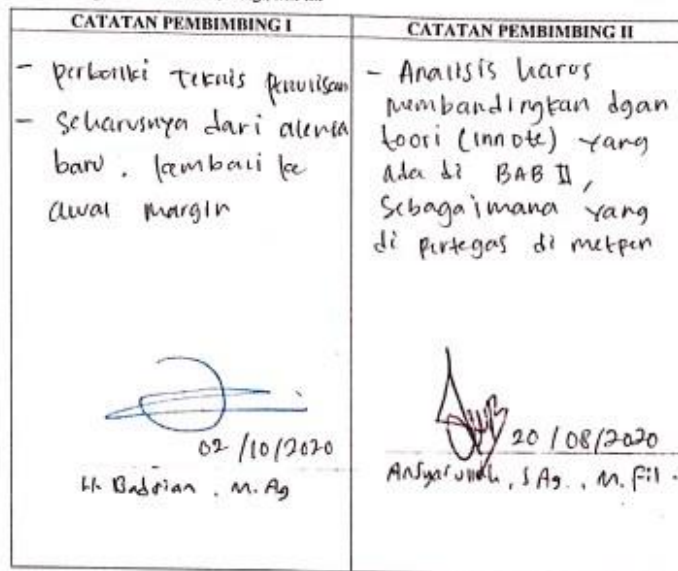 CATATAN PEMBIMBING I
- perbaiki Teknis penulisan
- Seharusnya dari alenia
baru. kembali ke
awal margin
02/10/2020
H. Badrian, M.Ag
CATATAN PEMBIMBING II
- Analisis harus
membandingkan dgan
teori (innote) yang
ada di BAB II,
Sebagaimana yang
di pertegas di metpen
20/08/2020
Ansyarullah, S Ag., M. Fil.